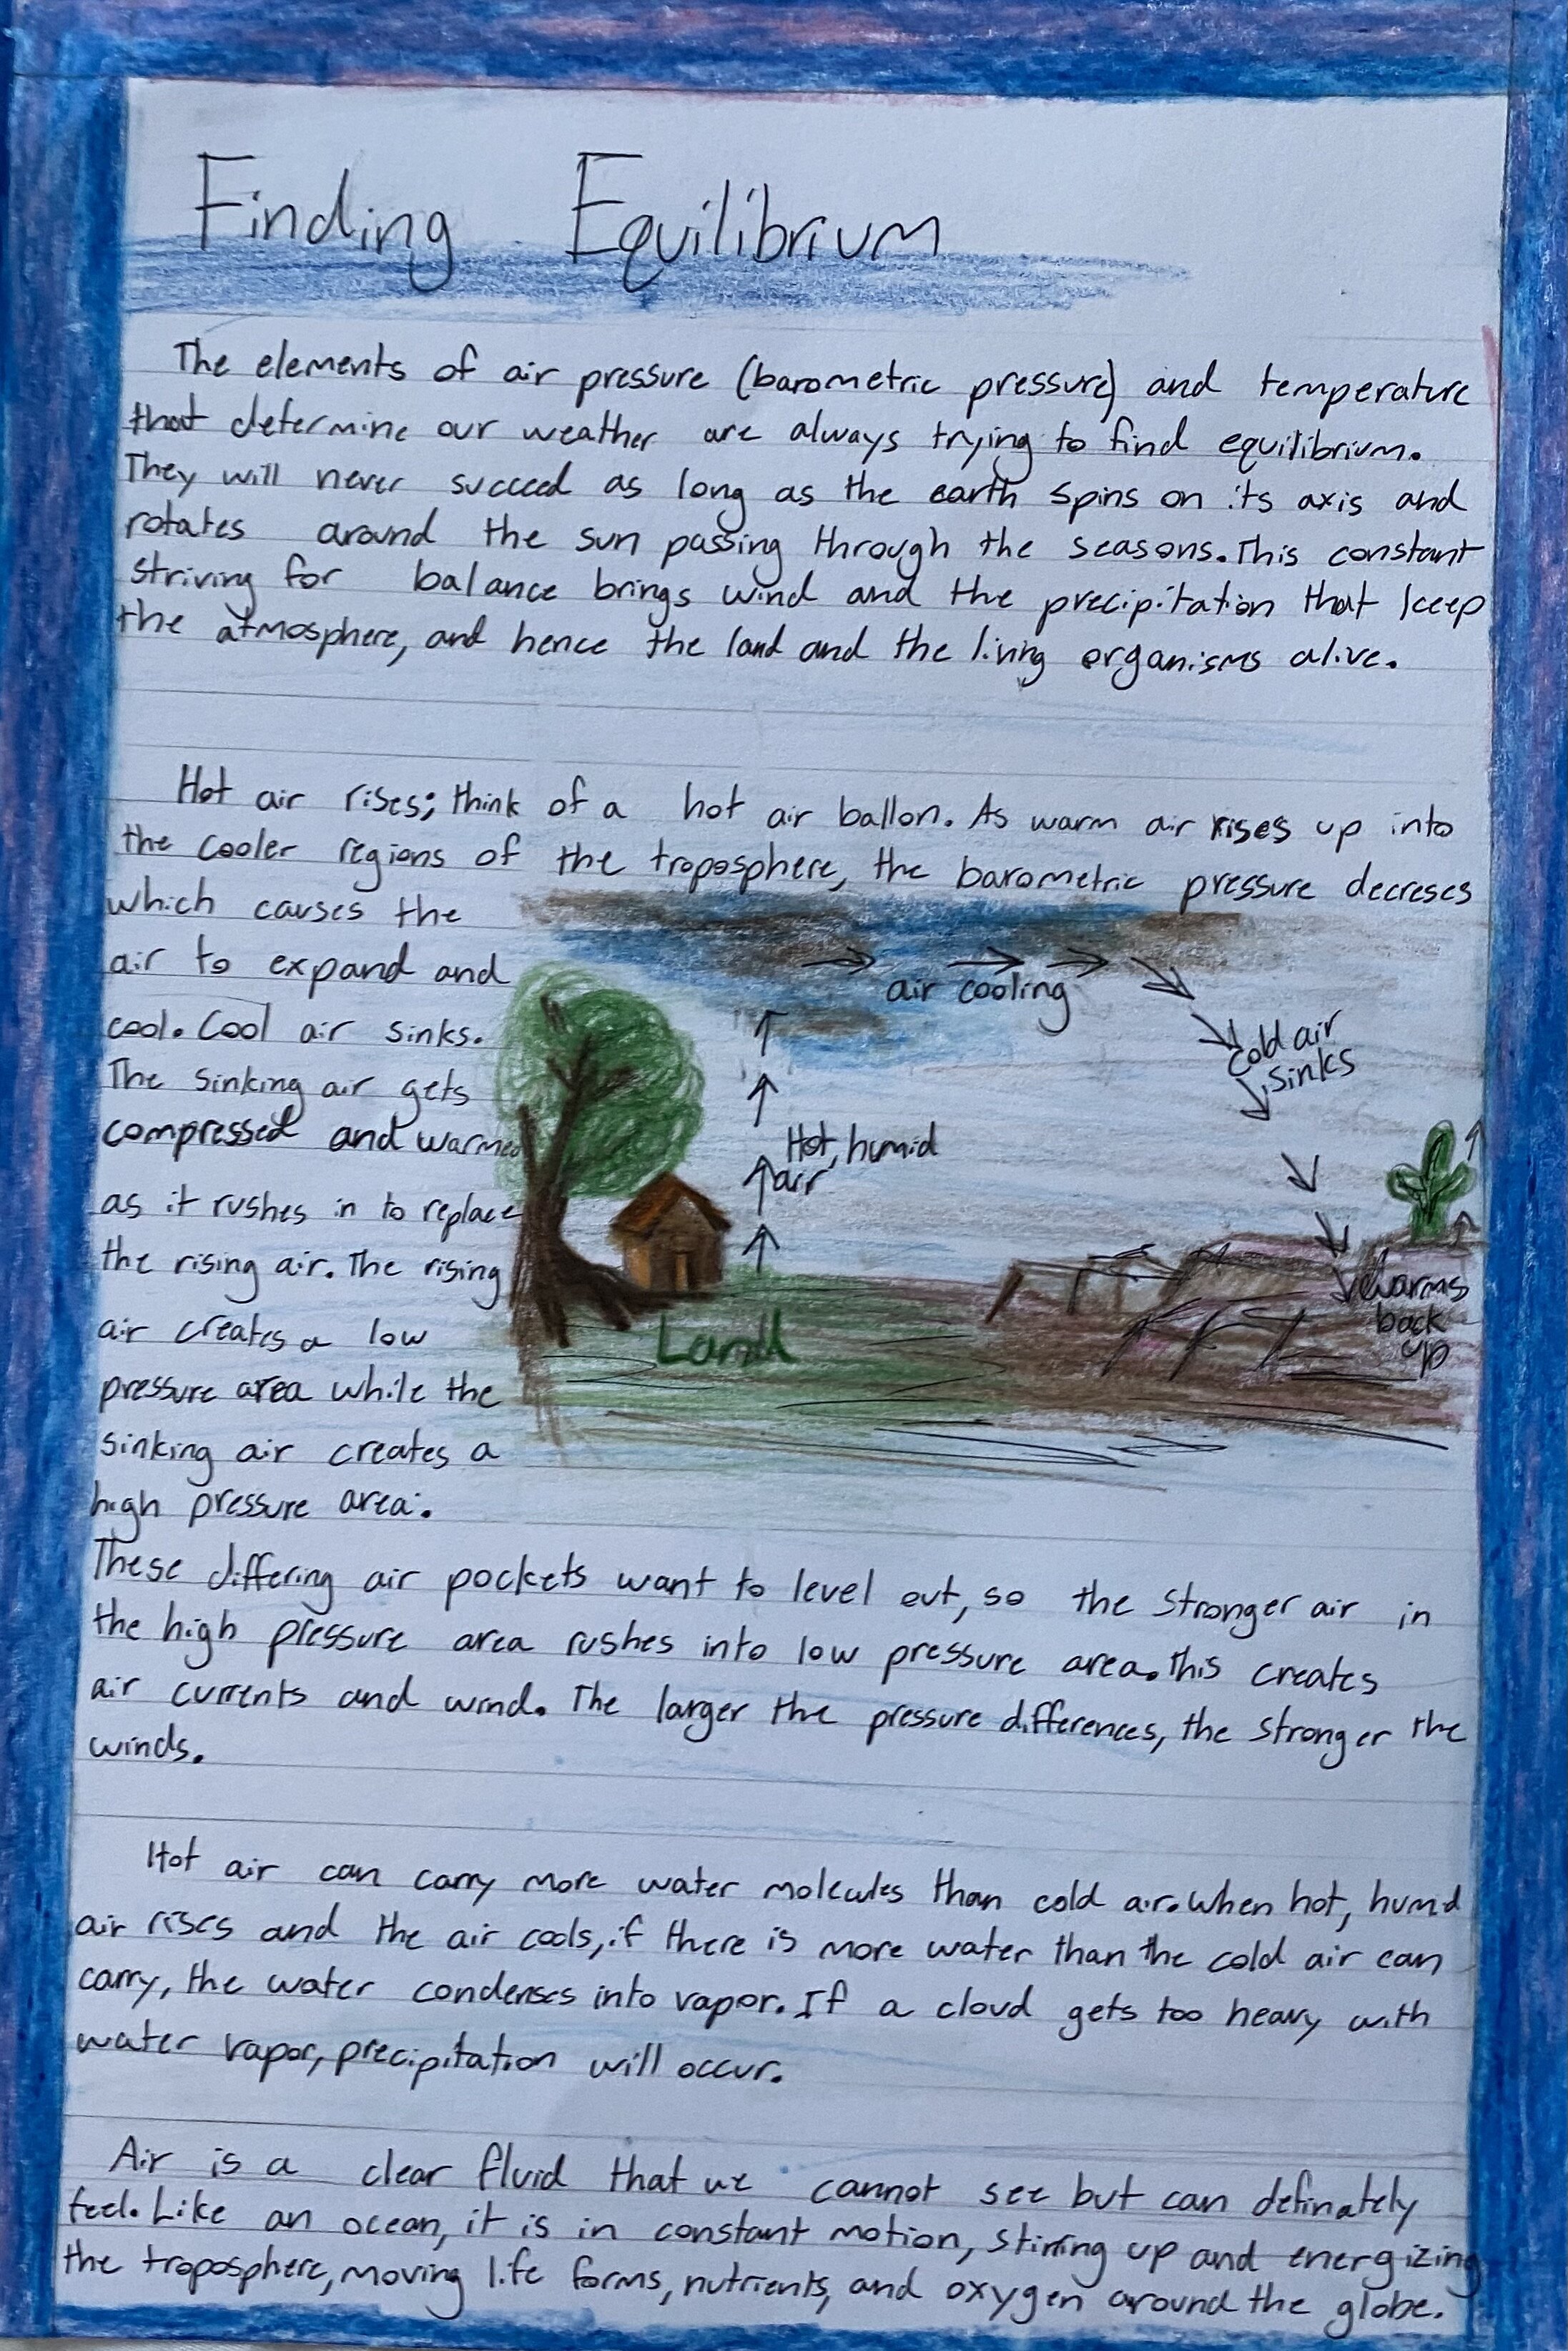 Finding Equilibrium
The elements of air pressure (barometric pressure) and temperature
that determine our weather are always trying to find equilibrium.
They will never succeed as long as the earth spins on its axis and
rotates around the sun passing through the seasons. This constant
striving for balance brings wind and the precipitation that keep
the atmosphere, and hence the land and the living organisms alive.
Hot air rises; think of a hot air ballon. As warm air rises up into
the cooler regions of the troposphere, the barometric pressure decreses
which causes the
air to expand and
cool. Cool air sinks.
The sinking air gets
compressed and warmed
as it rushes in to replace
the rising air. The rising
air creates a low
pressure area while the
sinking air creates a
high pressure area.
air cooling
cold air
sinks
Hot, humid
air
warms
back
up
Land
These differing air pockets want to level out, so the stronger air in
the high pressure area rushes into low pressure area. This creates
air currents and wind. The larger the pressure differences, the stronger the
winds.
Hot air can carry more water molecules than cold air. When hot, humid
air rises and the air cools, if there is more water than the cold air can
carry, the water condenses into vapor. If a cloud gets too heavy with
water vapor, precipitation will occur.
Air is a clear fluid that we cannot see but can definately
feel. Like an ocean, it is in constant motion, stirring up and energizing
the troposphere, moving life forms, nutrients, and oxygen around the globe.